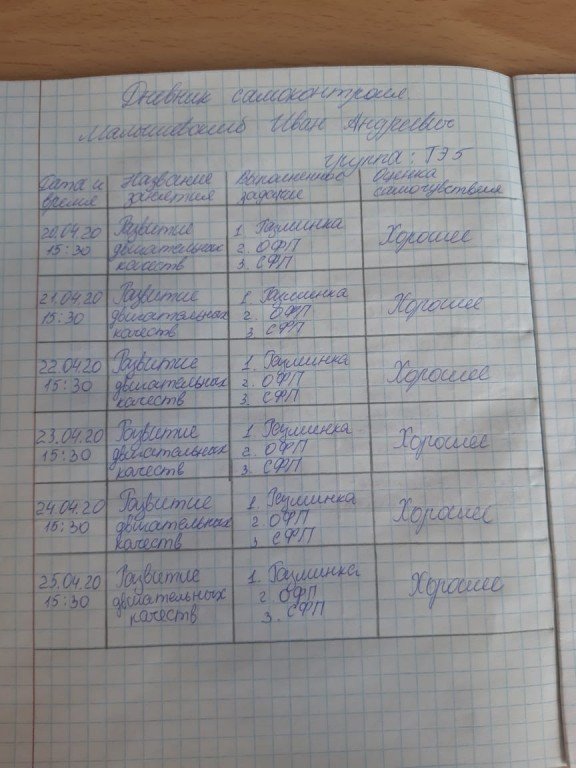 Дневник самоконтроля.
Иван Андреевич
группа: ТЭ5
Дата и время | Название занятия | Выполненное задание | Оценка самочувствия
20.04.20 15:30 | Развитие двигательных качеств | 1. Разминка 2. ОФП 3. СФП | Хорошее
21.04.20 15:30 | Развитие двигательных качеств | 1. Разминка 2. ОФП 3. СФП | Хорошее
22.04.20 15:30 | Развитие двигательных качеств | 1. Разминка 2. ОФП 3. СФП | Хорошее
23.04.20 15:30 | Развитие двигательных качеств | 1. Разминка 2. ОФП 3. СФП | Хорошее
24.04.20 15:30 | Развитие двигательных качеств | 1. Разминка 2. ОФП 3 СФП | Хорошее
25.04.20 15:30 | Развитие двигательных качеств | 1. Разминка 2. ОФП 3. СФП | Хорошее